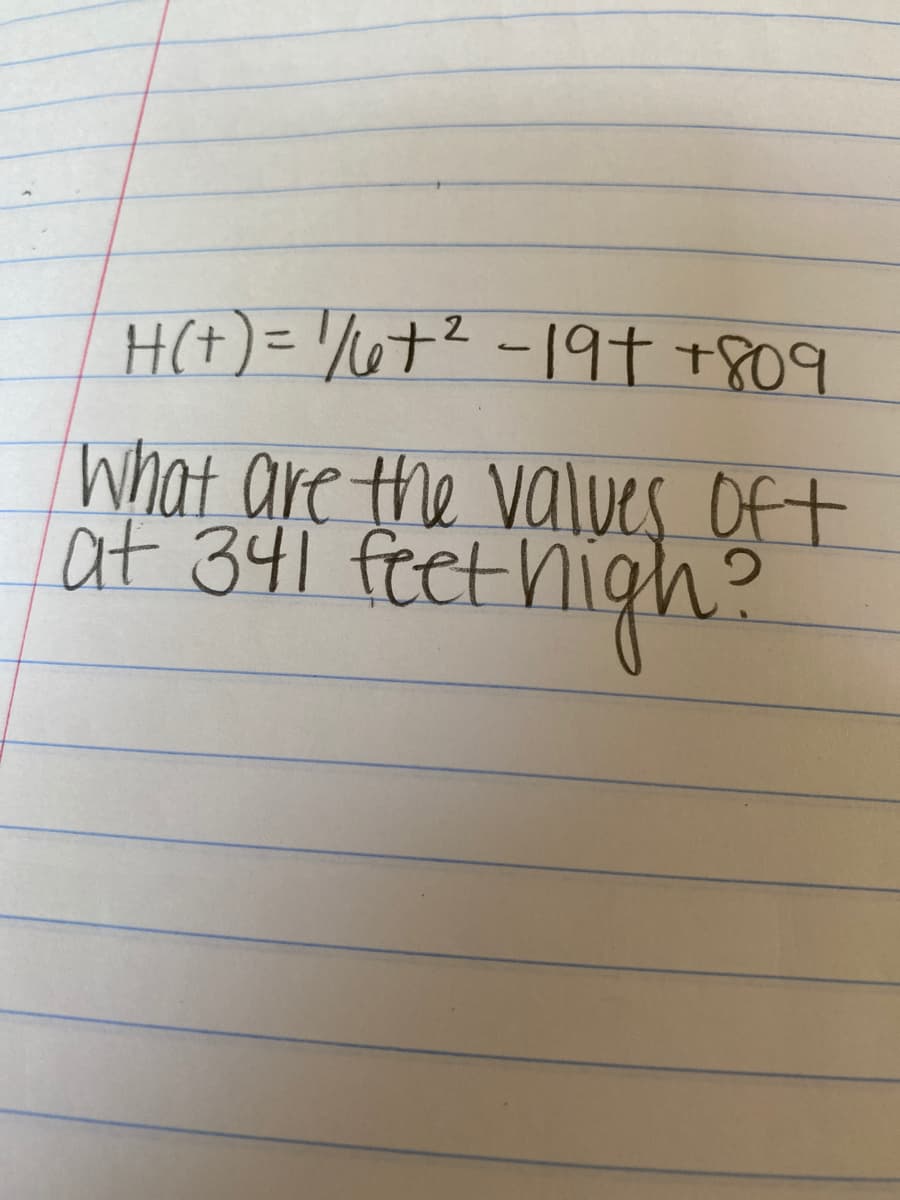 H(t) = 1/6t² - 19t + 809
What are the values of t
at 341 feet high?